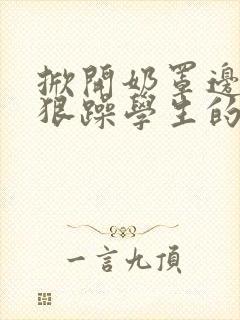 掀開奶罩邊
狠躁學生的
一言九頂